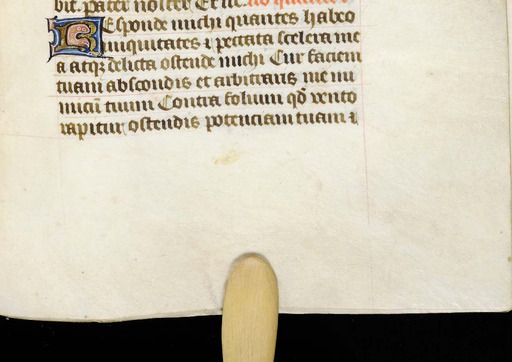 bit. Pater noster Et ne.
Esponde michi quantes habeo
iniquitates ⁊ peccata scelera me
a atq3 delicta ostende michi Cur faciem
tuam abscondis et arbitraris me ini
micū tuum Contra folium qď vento
rapitur ostendis potenciam tuam ⁊